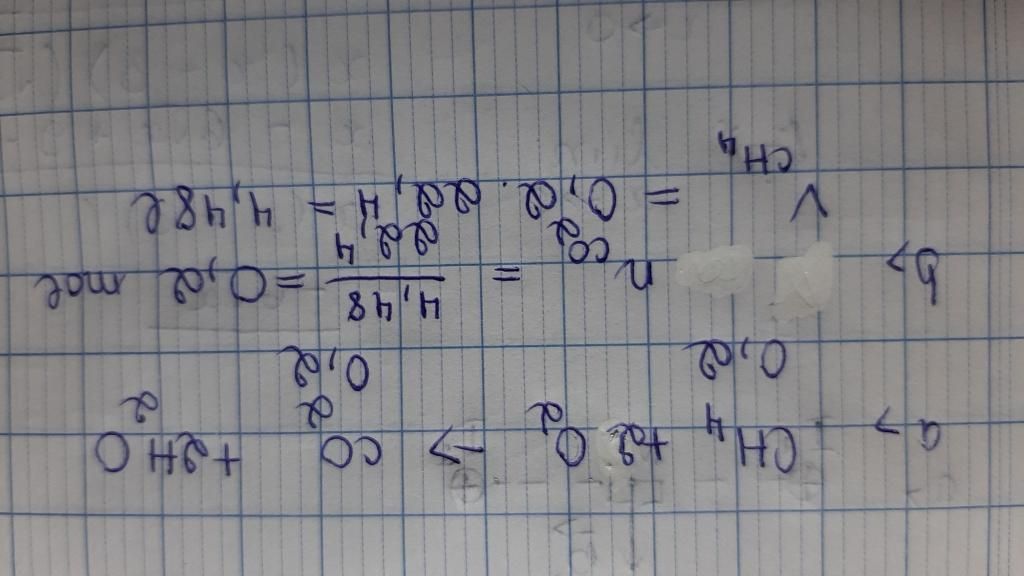 a> CH4 + 2O2 -> CO2 + 2H2O
0,2 0,2
b> nCO2 = 4,48/22,4 = 0,2 mol
VCH4 = 0,2 . 22,4 = 4,48l